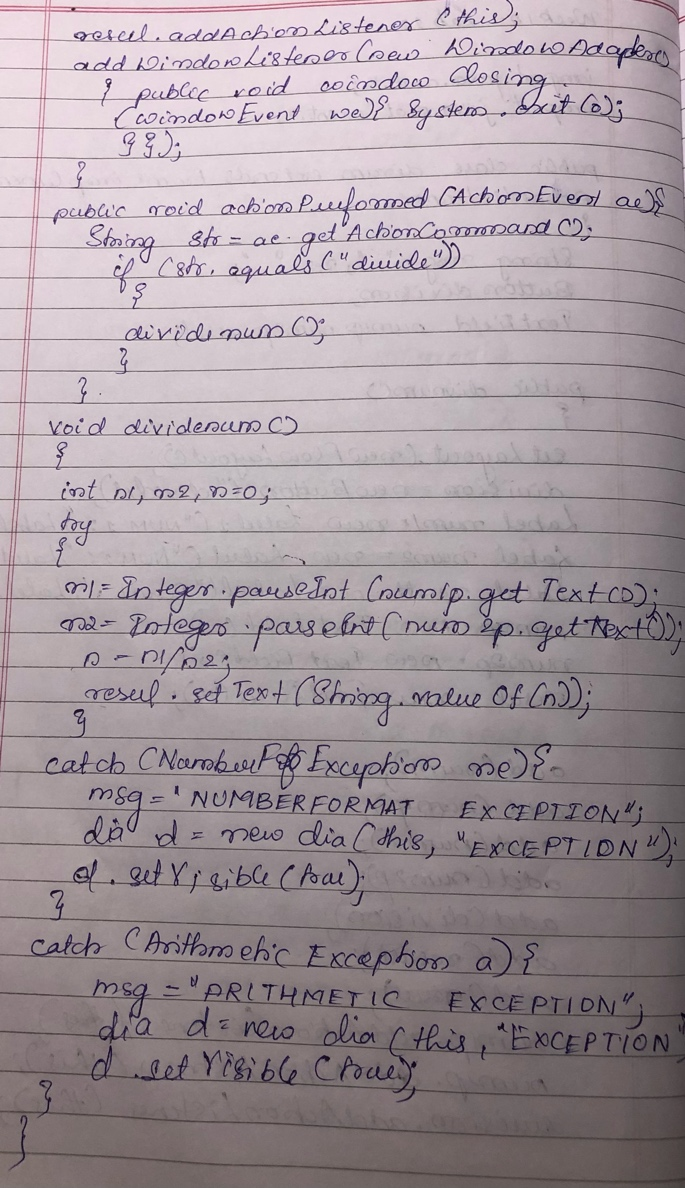 resul.addActionListener (this);
addWindowListener(new WindowAdapter()
{ public void window Closing
(WindowEvent we){ System.exit(0);
}});
}
public void actionPerformed (ActionEvent ae){
String str = ae.getActionCommand();
if (str.equals("divide"))
{
dividenum();
}
}
void dividenum()
{
int n1, n2, n=0;
try
{
n1= Integer.parseInt (num1p.get Text());
n2= Integer.parseInt(num2p.getText());
n = n1/n2;
resul.set Text (String.value Of (n));
}
catch (NumberF Exception ne){
msg = " NUMBERFORMAT EXCEPTION";
dia d = new dia(this, "EXCEPTION");
d.setVisible(true);
}
catch (Arithmetic Exception a) {
msg = "ARITHMETIC EXCEPTION";
dia d = new dia (this, "EXCEPTION"
d.setVisible(true);
}
}